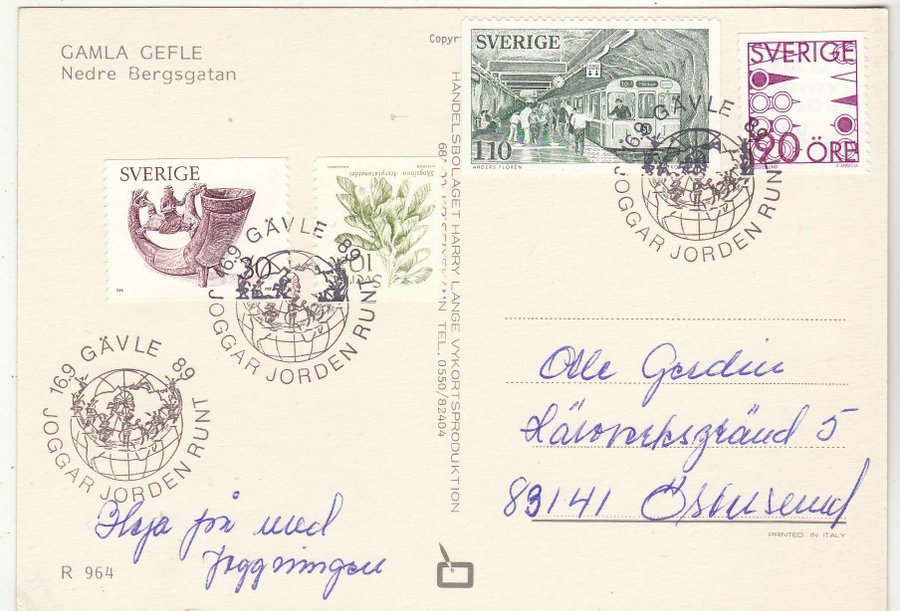 GAMLA GEFLE
Nedre Bergsgatan
Copyr
SVERIGE
110
ANDERS FLORÉN
SVERIGE
90 ÖRE
SVERIGE
30
Skogslönn Acer platanoides
10
SVERIGE
16.9 GÄVLE 89
JOGGAR JORDEN RUNT
16.9 GÄVLE 89
JOGGAR JORDEN RUNT
16.9 GÄVLE 89
JOGGAR JORDEN RUNT
HANDELSBOLAGET HARRY LANGE VYKORTSPRODUKTION
TEL. 0550/82404
Heja på med
Joggningen
Ole Gerdin
Läroverksgränd 5
83141 Östersund
PRINTED IN ITALY
R 964